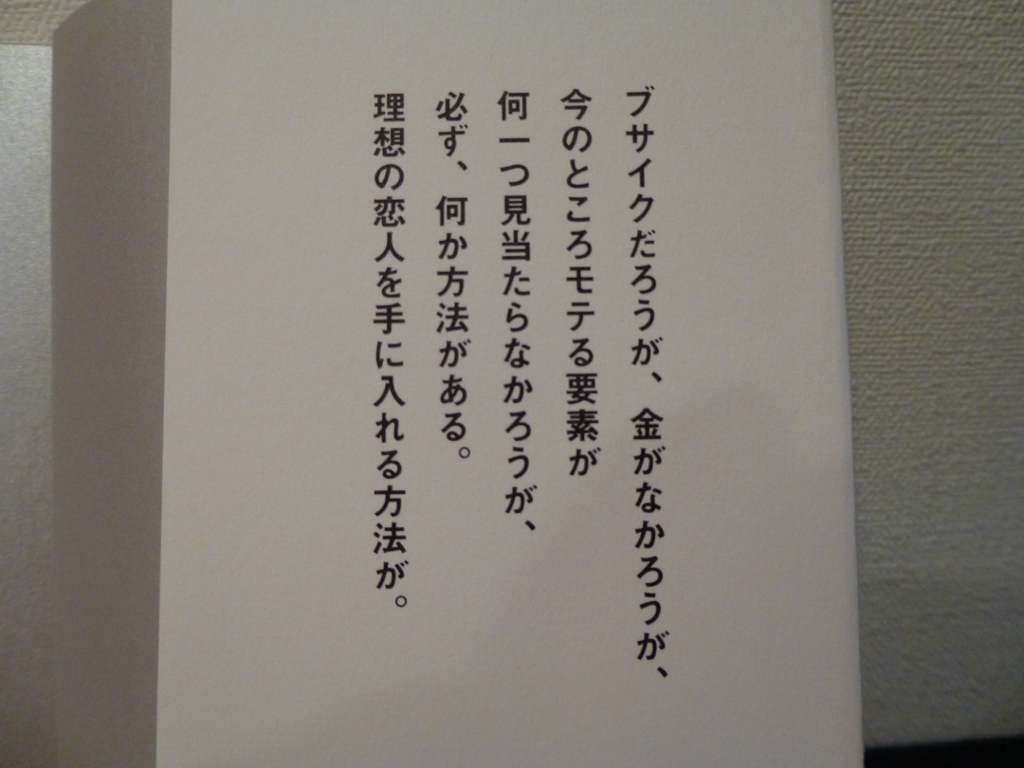 ブサイクだろうが、金がなかろうが、
今のところモテる要素が
何一つ見当たらなかろうが、
必ず、何か方法がある。
理想の恋人を手に入れる方法が。